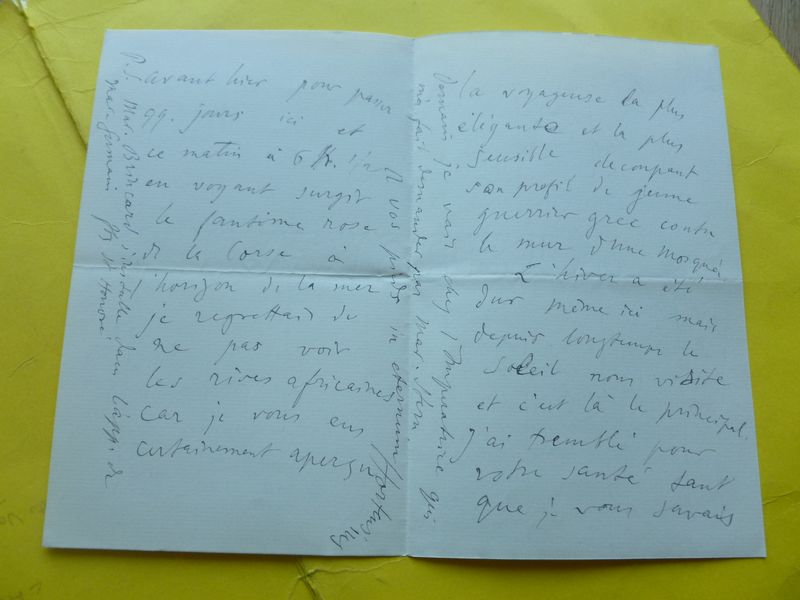 avant hier pour passer
qq. jours ici et
ce matin à 6 h. 1/2
en voyant surgir
le fantôme rose
de la Corse à
l'horizon de la mer
je regrettais de
ne pas voir
les rives africaines
car je vous eus
certainement aperçu
la voyageuse la plus
élégante et la plus
sensible découpant
son profil de jeune
guerrier grec contre
le mur d'une mosquée
L'hiver a été
dur même ici mais
depuis longtemps le
soleil nous visite
et c'est là le principal.
j'ai tremblé pour
votre santé tant
que je vous savais
Demain je vais chez l'Impératrice qui
m'a fait demander par Mad.
A vos pieds in eternum
P.S. Mad. Brincard s'installe dans l'app. de
Mad. Germain fbg St Honoré